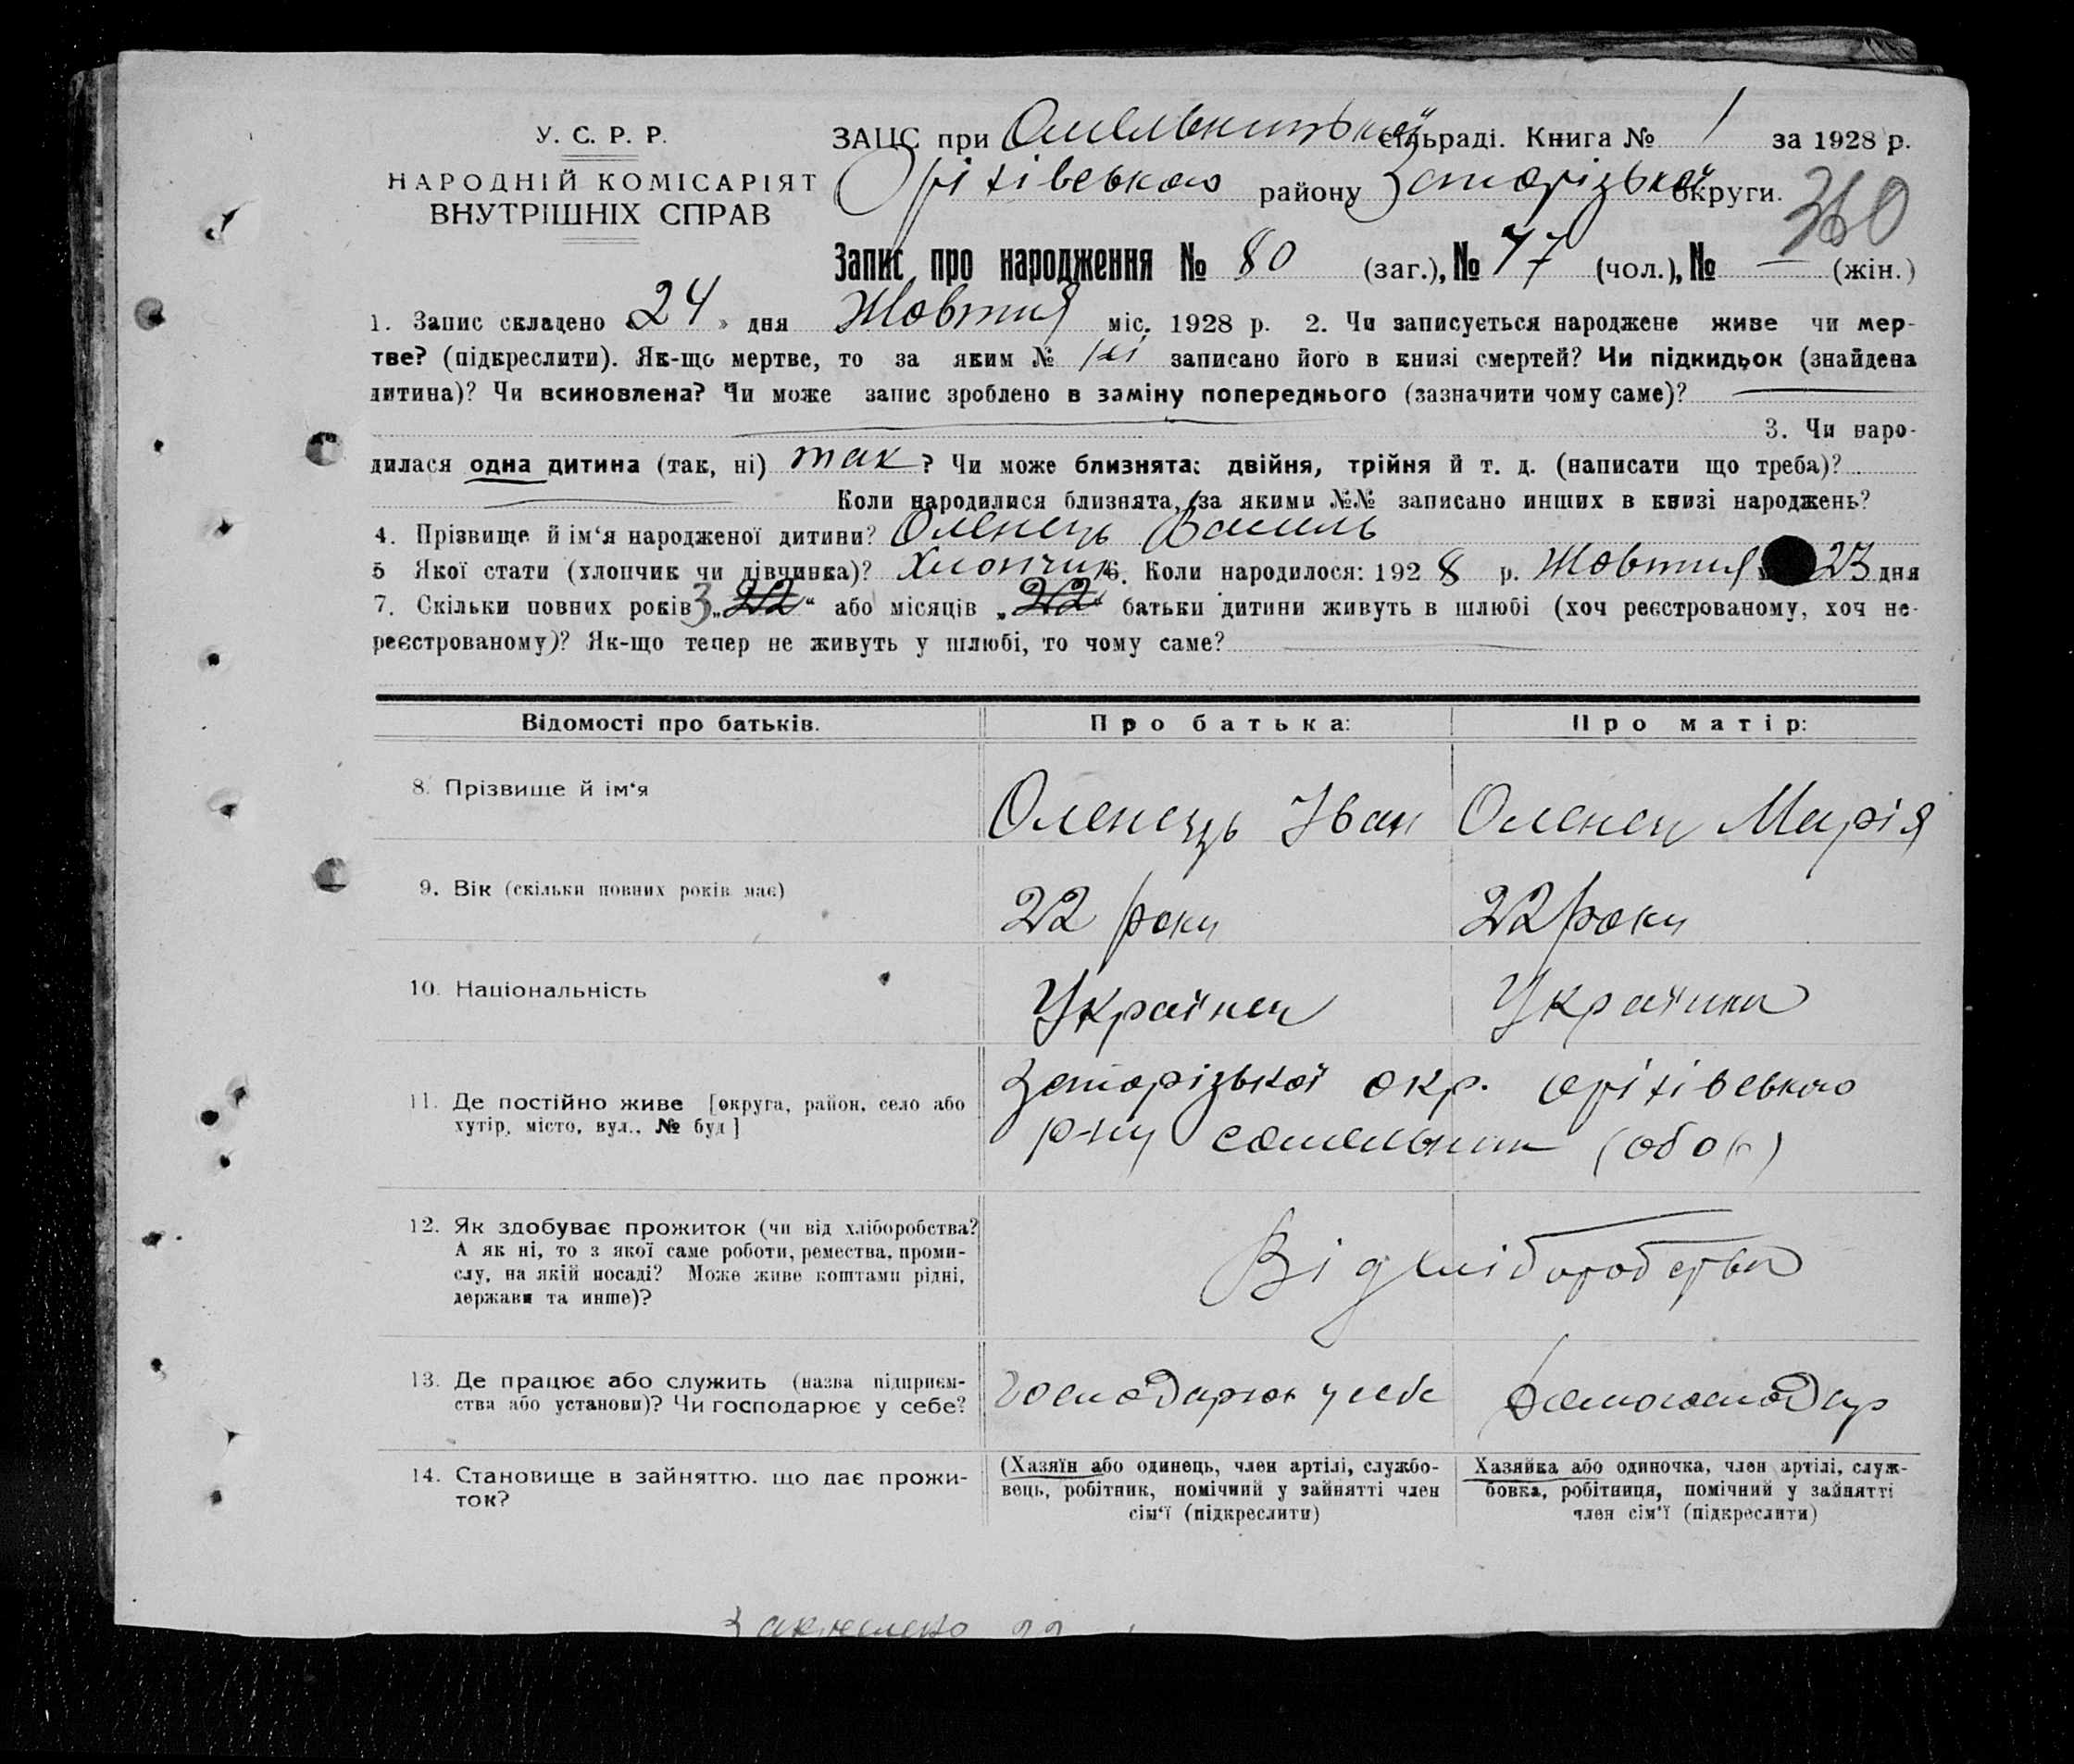 У. С. Р. Р.
НАРОДНІЙ КОМІСАРІЯТ
ВНУТРІШНІХ СПРАВ
ЗАЦС при Омельницької сільраді. Книга № 1 за 1928 р.
Оріхівського району Запорізької округи.
360
Запис про народження № 80 (заг.), № 47 (чол.), № — (жін.)
1. Запис складено „24" дня Жовтня міс. 1928 р. 2. Чи записується народжене живе чи мер-
тве? (підкреслити). Як-що мертве, то за яким № записано його в книзі смертей? Чи підкидьок (знайдена
дитина)? Чи всиновлена? Чи може запис зроблено в заміну попереднього (зазначити чому саме)?
3. Чи наро-
дилася одна дитина (так, ні) так? Чи може близнята: двійня, трійня й т. д. (написати що треба)?
Коли народилися близнята, за якими №№ записано инших в книзі народжень?
4. Прізвище й ім'я народженої дитини? Оленець Василь
5 Якої стати (хлопчик чи дівчинка)? Хлопчик 6. Коли народилося: 1928 р. Жовтня 23 дня
7. Скільки повних років 3 „22" або місяців „22" батьки дитини живуть в шлюбі (хоч реєстрованому, хоч не-
реєстрованому)? Як-що тепер не живуть у шлюбі, то чому саме?
Відомості про батьків. Про батька: Про матір:
8. Прізвище й ім'я Оленець Іван Оленец Марія
9. Вік (скільки повних років має) 22 роки 22 роки
10. Національність Українец Українка
11. Де постійно живе [округа, район, село або
хутір, місто, вул., № буд]
Запорізької окр. Оріхівського
р-ну с Омельник (обоє)
12. Як здобуває прожиток (чи від хліборобства?
А як ні, то з якої саме роботи, ремества, проми-
слу, на якій посаді? Може живе коштами рідні,
держави та инше)?
Від хліборобства
13. Де працює або служить (назва підприєм-
ства або установи)? Чи господарює у себе?
Господарює у себе Домогосподар
14. Становище в зайняттю, що дає прожи-
ток?
(Хазяїн або одинець, член артілі, службо-
вець, робітник, помічний у зайнятті член
сім'ї (підкреслити)
Хазяйка або одиночка, член артілі, служ-
бовка, робітниця, помічний у зайнятті
член сім'ї (підкреслити)